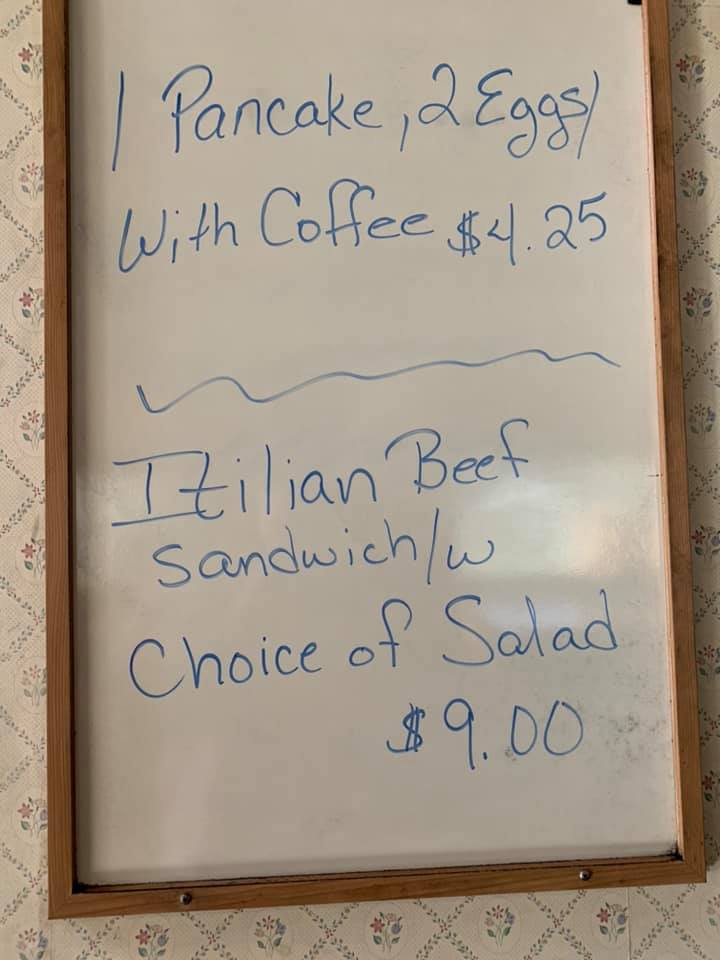 1 Pancake, 2 Eggs/
With Coffee $4.25
Itilian Beef
Sandwich/w
Choice of Salad
$9.00